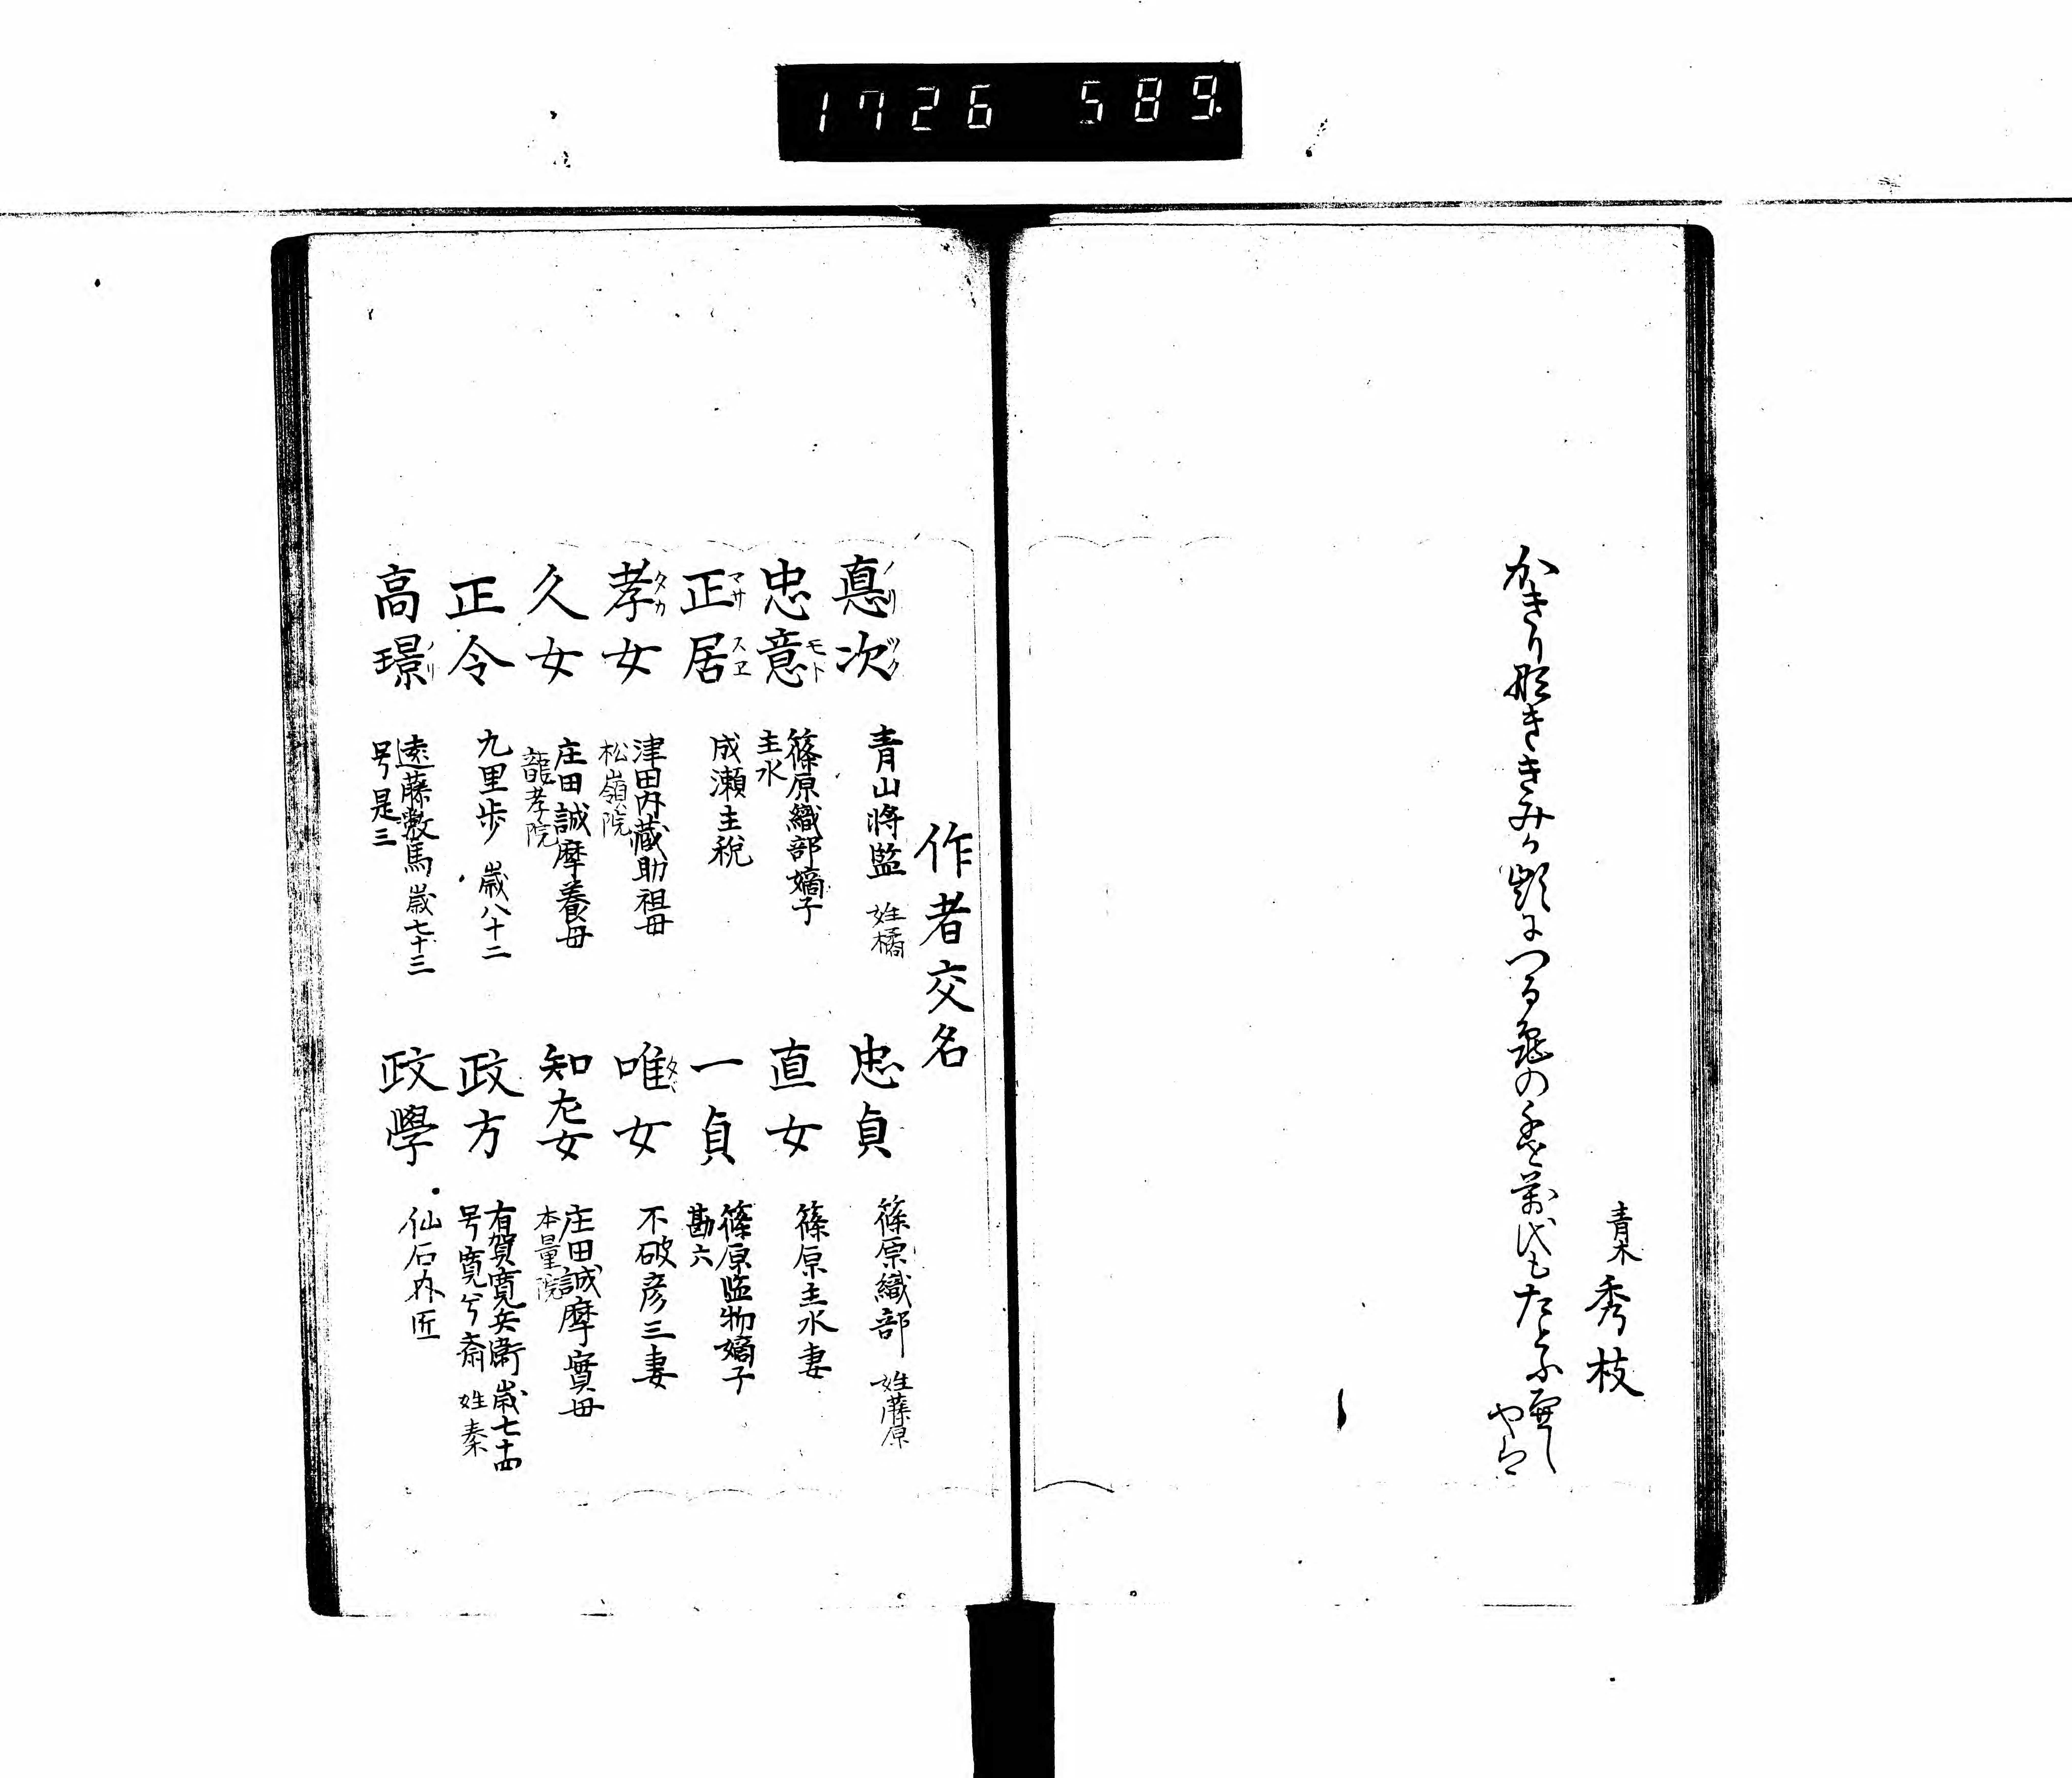 1726 589
青木 秀枝
かきり那きみか齢につる亀の千とせ萬代もたとふへし
やは
作者交名
悳次 ノリ ツク 青山将監 姓橘
忠意 モト 篠原織部嫡子 主水
正居 マサ スヱ 成瀬主税
孝女 タカ 津田内蔵助祖母 松嶺院
久女 庄田誠摩養母 龍孝院
正令 九里歩 歳八十二
高璟 ノリ 遠藤数馬 歳七十三 号是三
忠貞 篠原織部 姓藤原
直女 篠原主水妻
一貞 篠原監物嫡子 勘六
唯女 タヾ 不破彦三妻
知左女 庄田誠摩實母 本量院
政方 有賀寛兵衛 歳七十四 号寛兮斎 姓秦
政學 仙石内匠